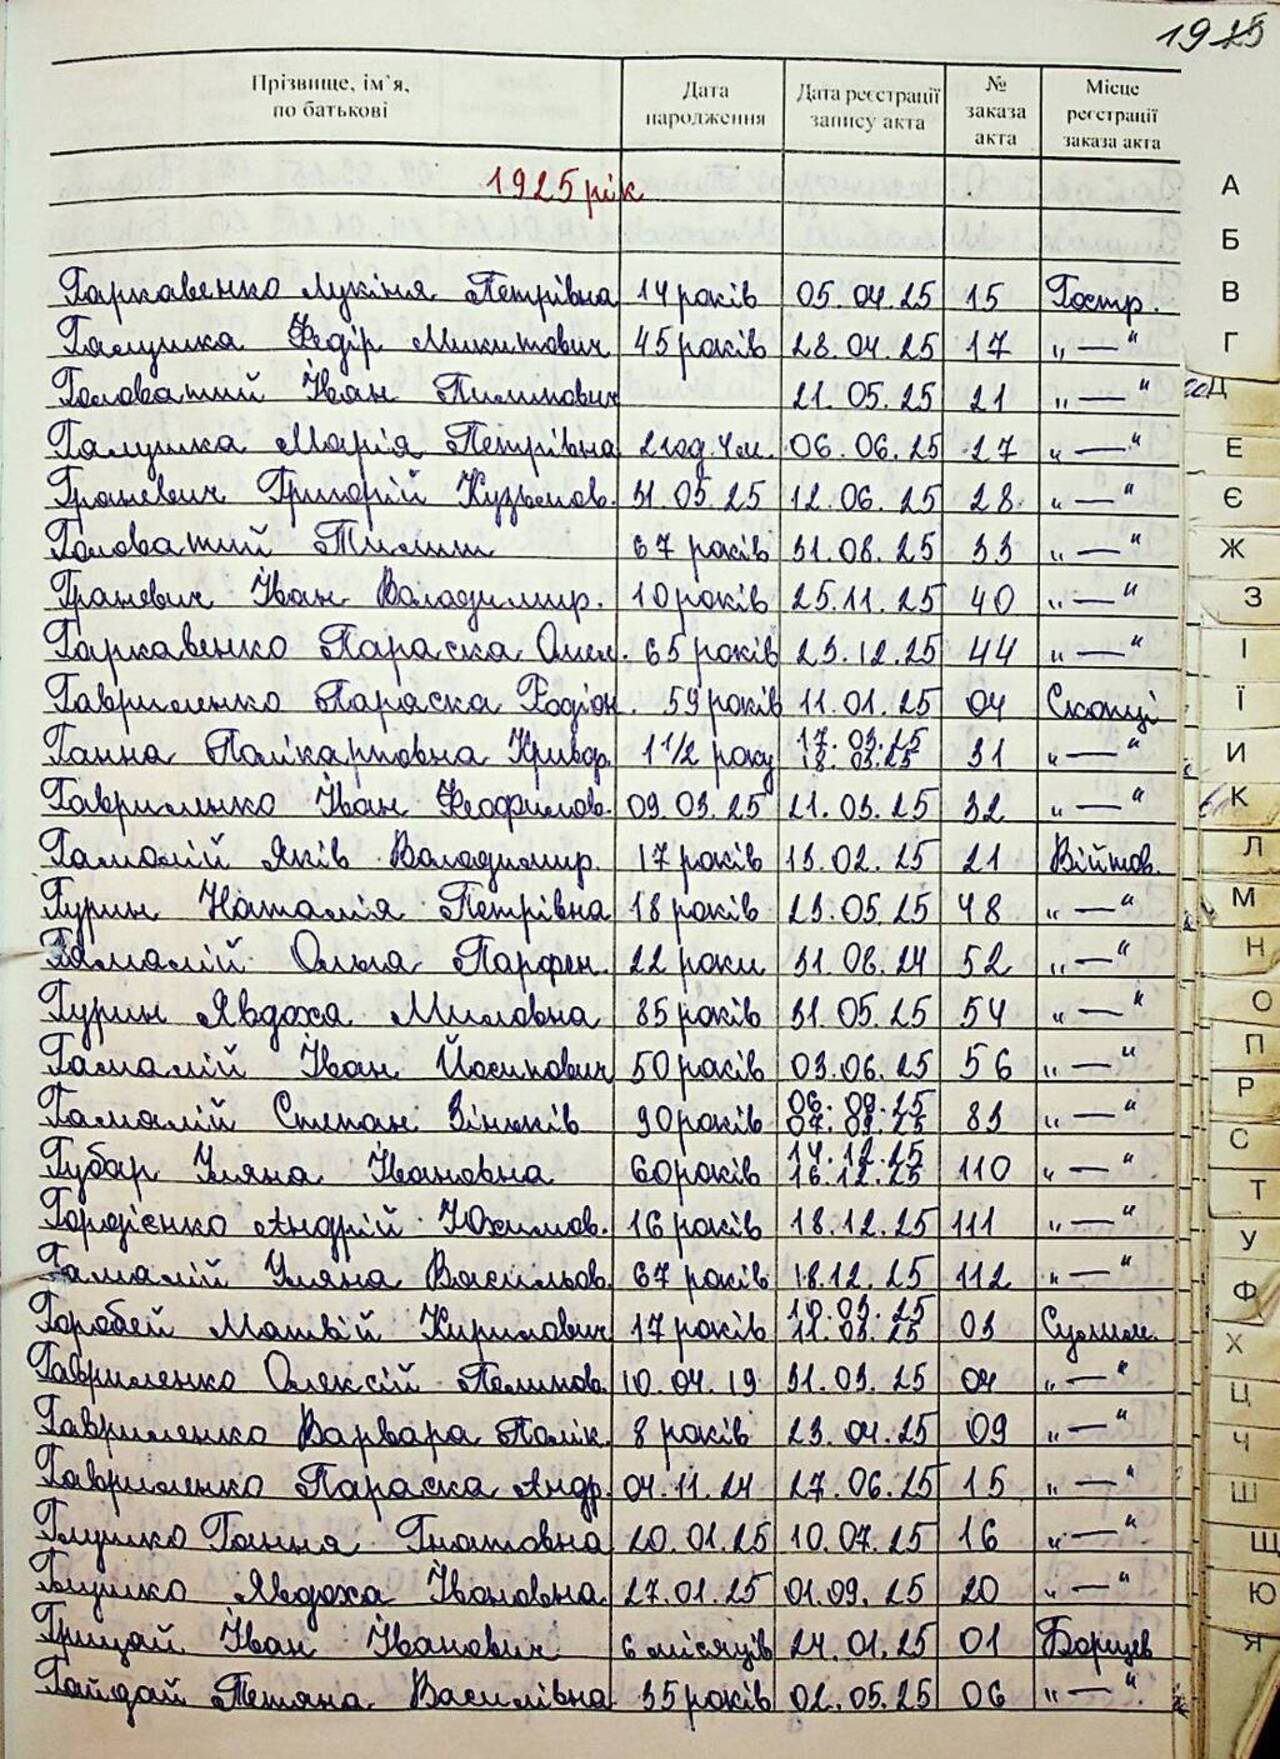 1925
Прізвище, ім`я, по батькові Дата народження Дата реєстрації запису акта № заказа акта Місце реєстрації заказа акта
1925 рік
Гаркавенко Лукіня Петрівна 14 років 05.04.25 15 Гостр.
Галушка Федір Микитович 45 років 28.04.25 17 „—“
Головатий Іван Пилипович 21.05.25 21 „—“
Галушка Марія Петрівна 2 год. 4 м. 06.06.25 27 „—“
Граневич Григорій Кузьмов. 31.05.25 12.06.25 28 „—“
Головатий Пилип 67 років 31.08.25 33 „—“
Граневич Іван Володимир. 10 років 25.11.25 40 „—“
Гаркавенко Параска Омел. 65 років 23.12.25 44 „—“
Гавриленко Параска Родіон. 59 років 11.01.25 04 Скопці
Ганна Полікарповна Кривор. 1 1/2 року 17.03.25 18.03.25 31 „—“
Гавриленко Іван Феофилов. 09.03.25 21.03.25 32 „—“
Гамалій Яків Володимир. 17 років 13.02.25 21 Війтов.
Гурин Наталія Петрівна 18 років 23.05.25 48 „—“
Гамалій Ольга Парфен. 22 роки 31.08.24 52 „—“
Гурин Явдоха Миловна 85 років 31.05.25 54 „—“
Гамалій Іван Йосипович 50 років 03.06.25 56 „—“
Гамалій Степан Зіньків 90 років 06.09.25 07.09.25 83 „—“
Губар Уляна Івановна 60 років 14.12.25 16.12.25 110 „—“
Гордієнко Андрій Юхимов. 16 років 18.12.25 111 „—“
Гамалій Уляна Васильов. 67 років 18.12.25 112 „—“
Горобей Матвій Кирилович 17 років 10.03.25 11.03.25 03 Сулим.
Гавриленко Олексій Пилипов. 10.04.19 31.03.25 04 „—“
Гавриленко Варвара Полік. 8 років 23.04.25 09 „—“
Гавриленко Параска Андр. 04.11.24 27.06.25 15 „—“
Глушко Ганна Гнатовна 20.01.25 10.07.25 16 „—“
Глушко Явдоха Івановна 27.01.25 01.09.25 20 „—“
Грицай Іван Іванович 6 місяців 24.01.25 01 Борщев
Гайдай Тетяна Василівна 35 років 02.05.25 06 „—“
А
Б
В
Г
Д
Е
Є
Ж
З
І
Ї
И
К
Л
М
Н
О
П
Р
С
Т
У
Ф
Х
Ц
Ч
Ш
Щ
Ю
Я